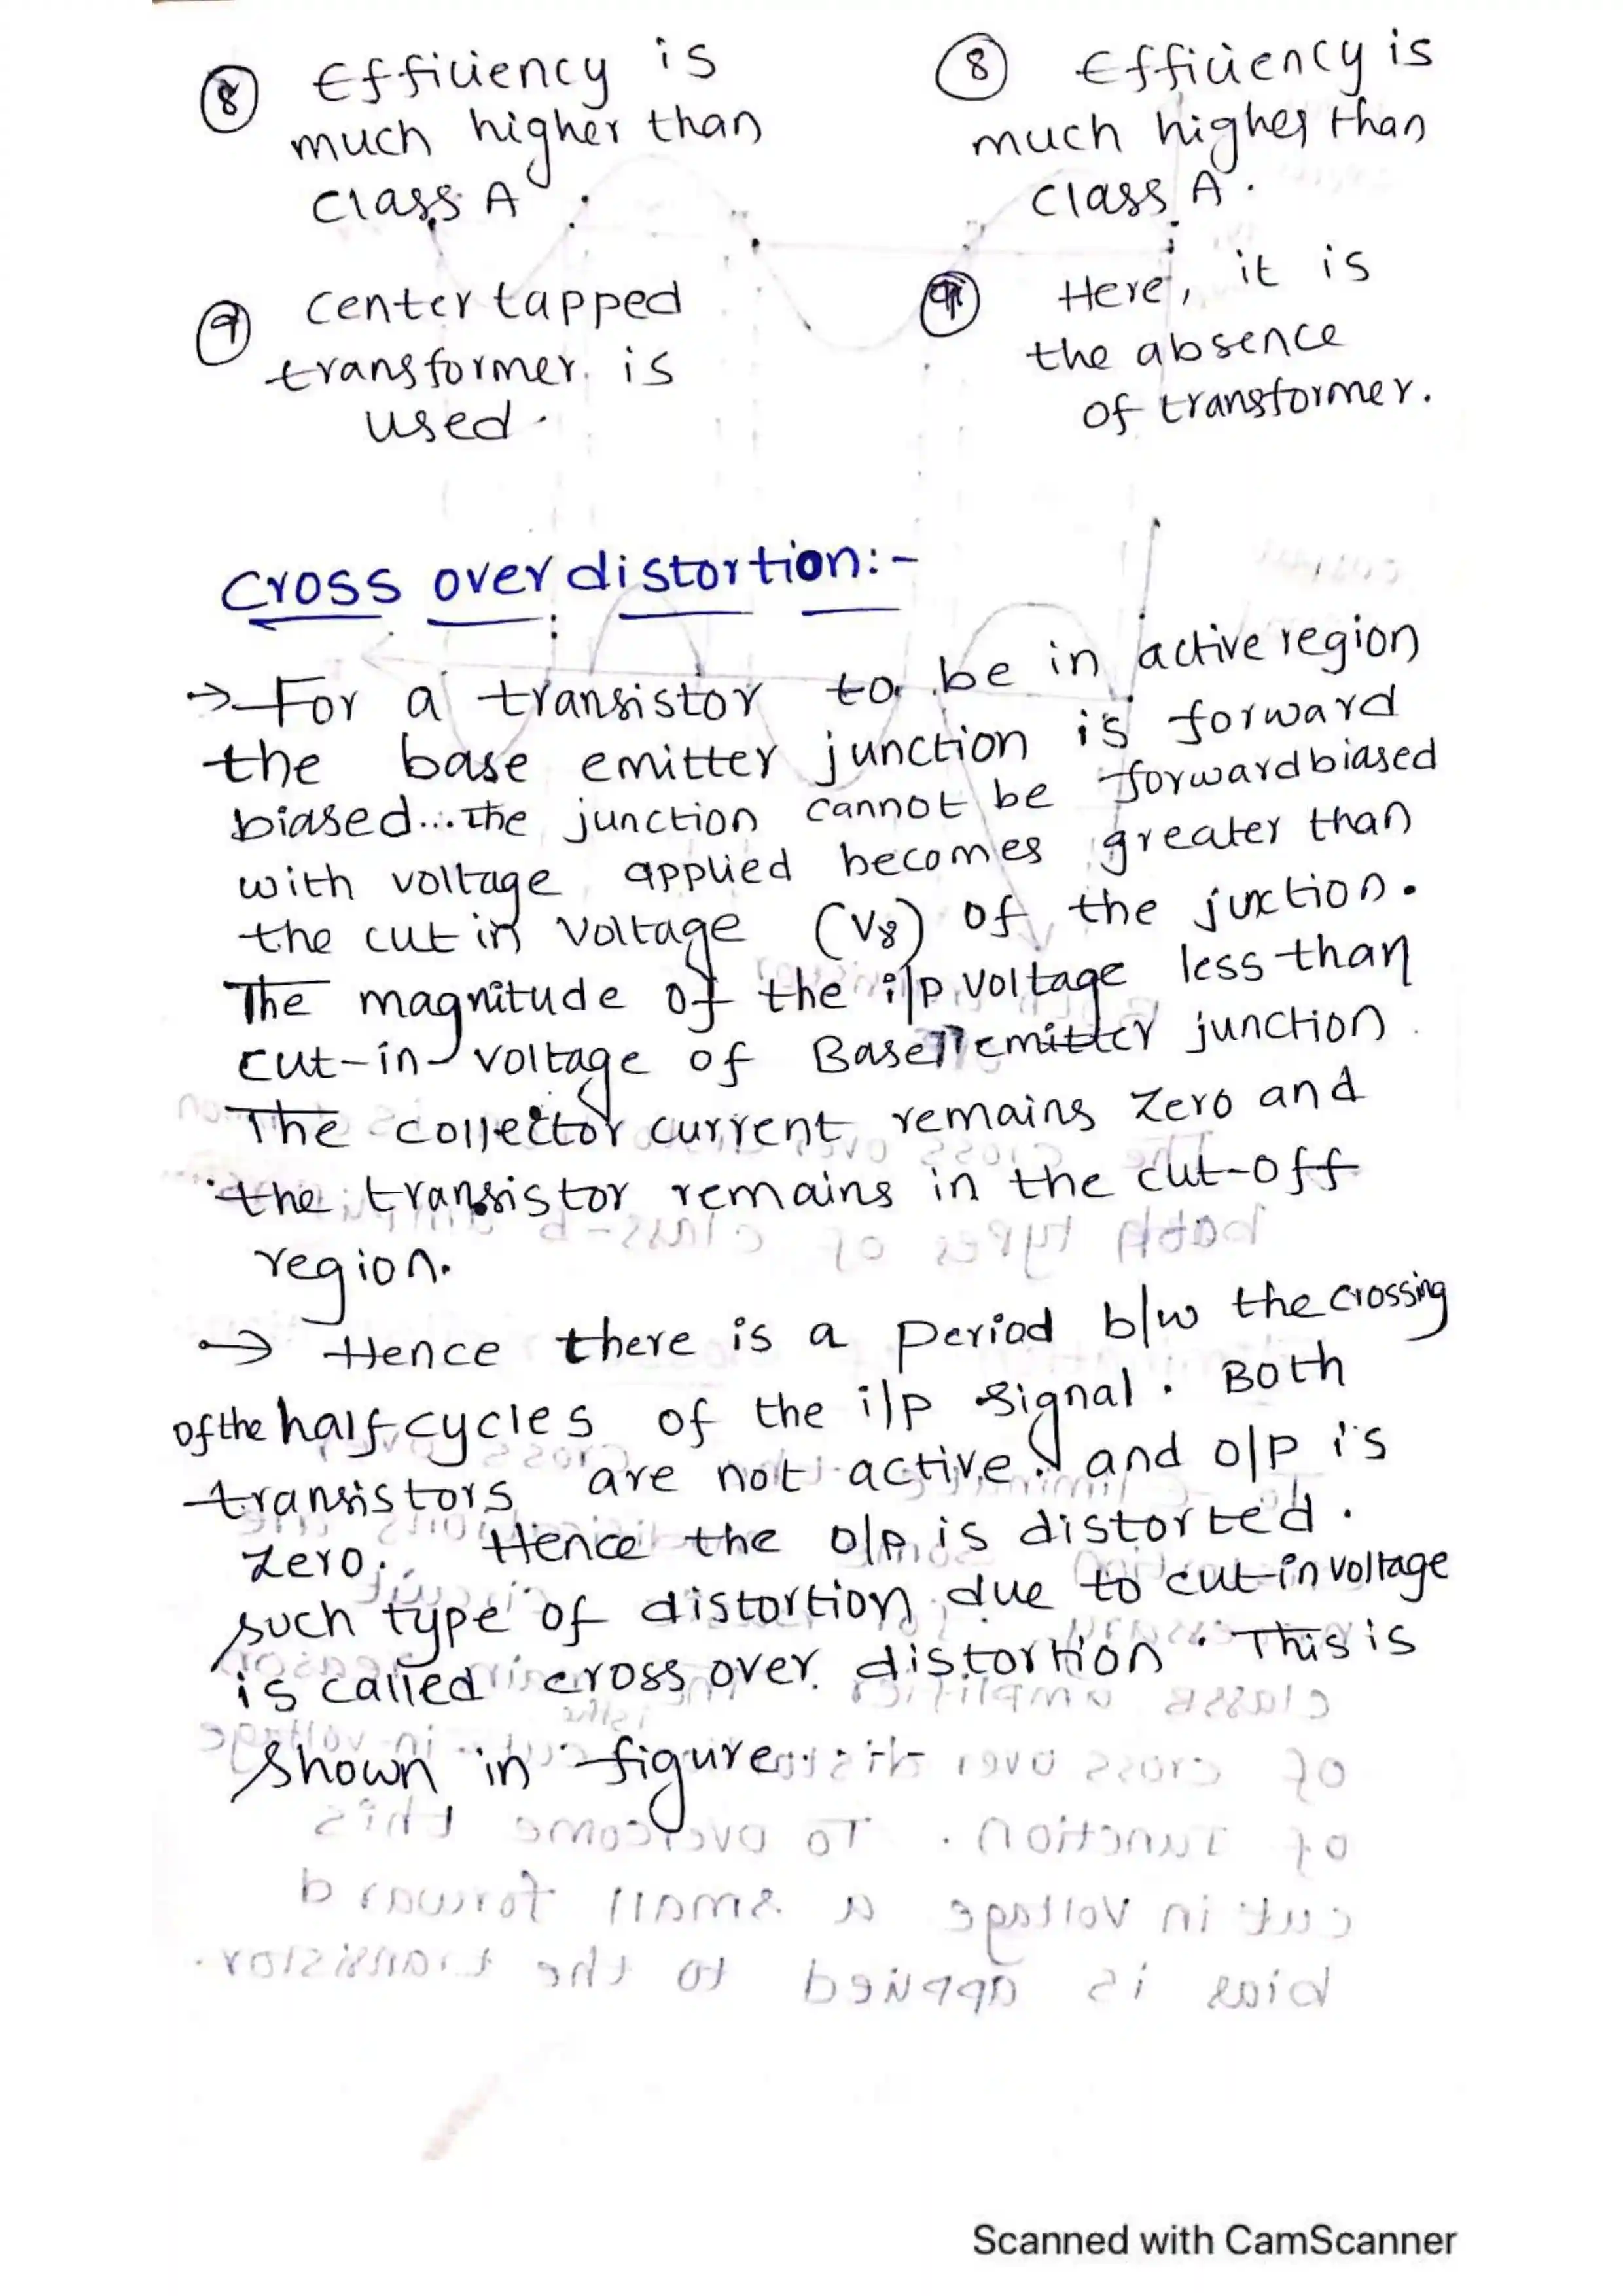 ⑧ Efficiency is
much higher than
class A.
⑨ center tapped
transformer is
used.
⑧ Efficiency is
much higher than
class A.
⑨ Here, it is
the absence
of transformer.
Cross over distortion:-
→ For a transistor to be in active region
the base emitter junction is forward
biased... The junction cannot be forward biased
with voltage applied becomes greater than
the cut in voltage (Vγ) of the juction.
The magnitude of the i/p voltage less than
cut-in-voltage of Base emitter junction
The collector current remains zero and
the transistor remains in the cut-off
region.
→ Hence there is a period b/w the crossing
of the half cycles of the i/p signal. Both
transistors are not active. and o/p is
zero. Hence the o/p is distorted.
such type of distortion due to cut-in voltage
is called cross over distortion. This is
shown in figure.
of Junction. To overcome this
cut in voltage a small forward
bias is applied to the transistor.
Scanned with CamScanner